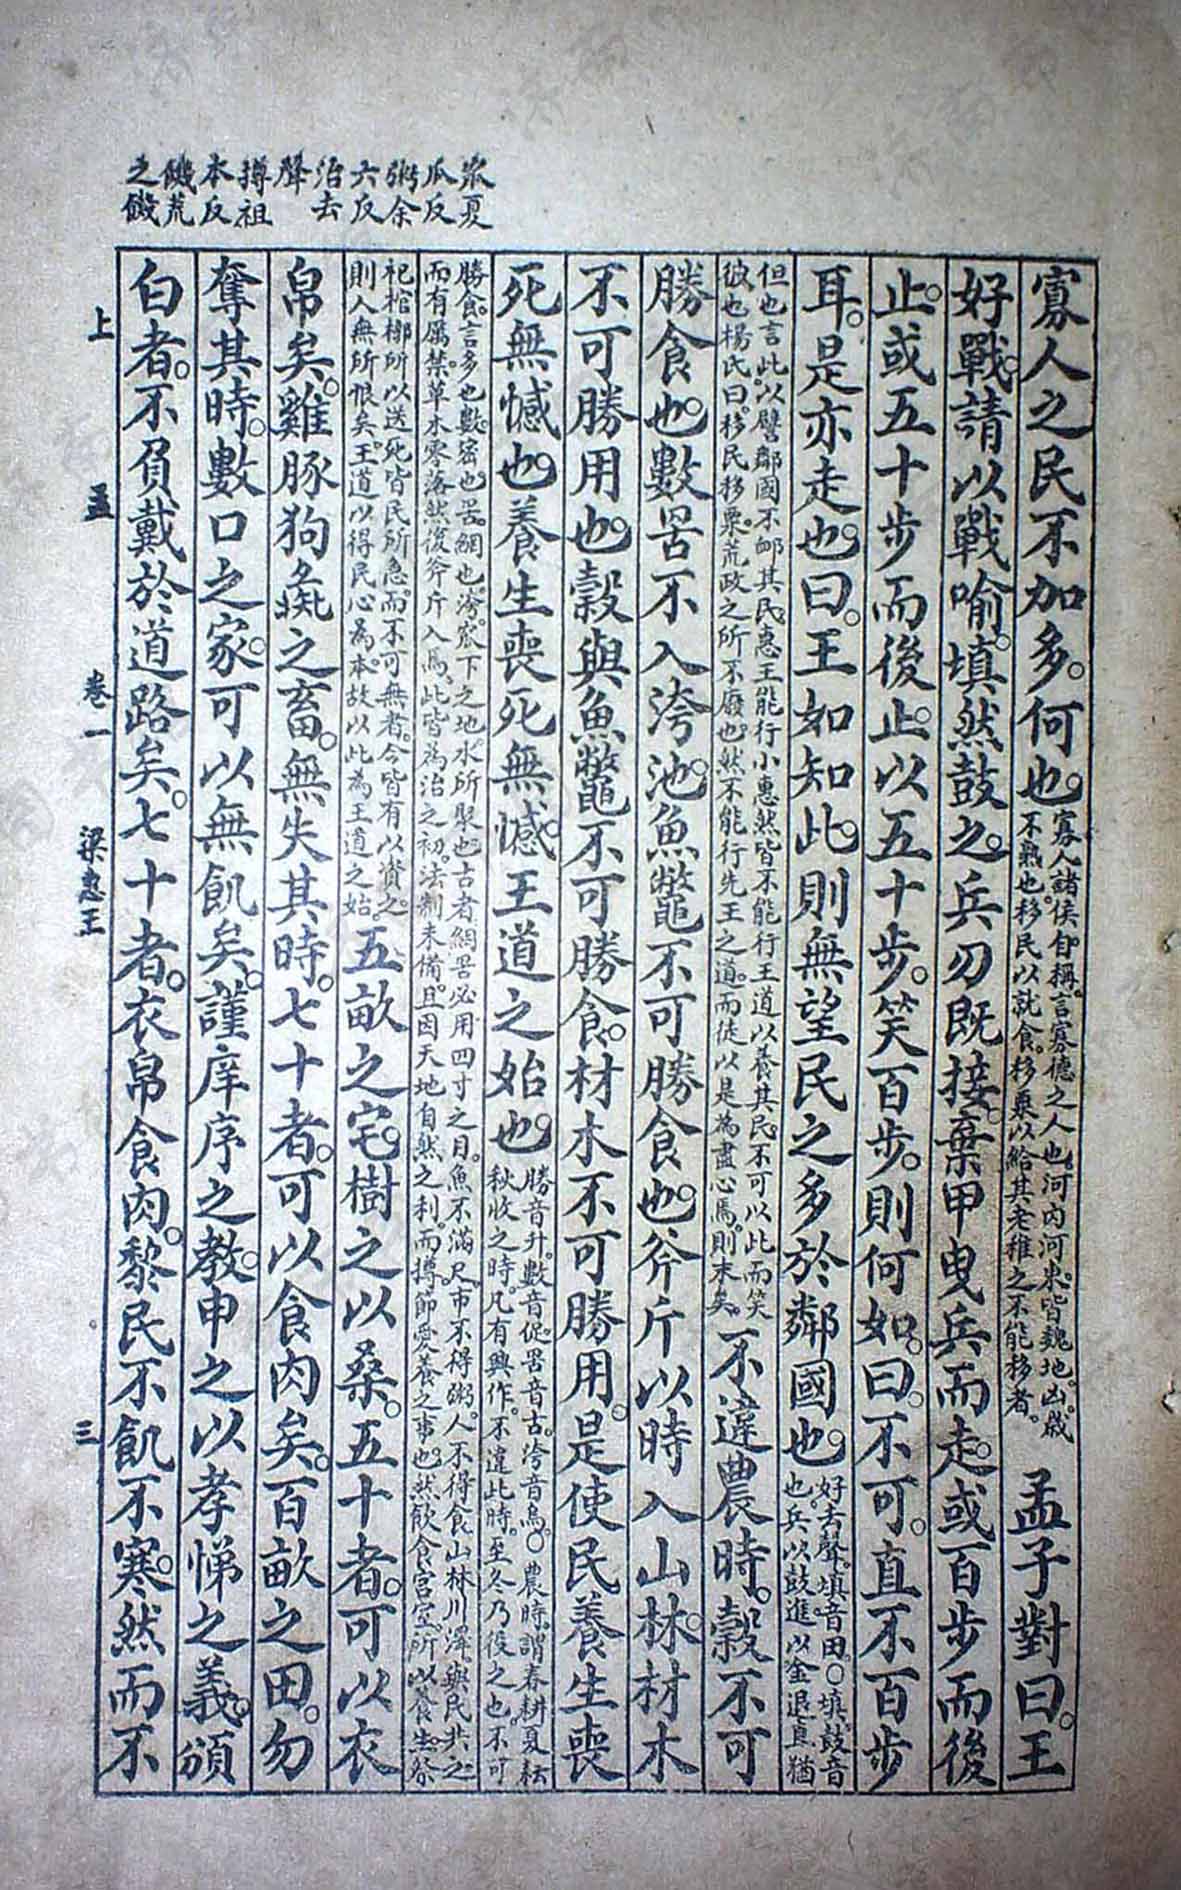 瓜反
粥余
六反
治去
聲
撙祖
本反
饑荒
之饑
寡人之民不加多。何也。寡人諸侯自稱。言寡德之人也。河內河東。皆魏地。凶。歲
不熟也。移民以就食。移粟以給其老稚之不能移者。孟子對曰。王
好戰。請以戰喻。填然鼓之。兵刃既接。棄甲曳兵而走。或百步而後
止。或五十步而後止。以五十步。笑百步。則何如。曰。不可。直不百步
耳。是亦走也。曰。王如知此。則無望民之多於鄰國也。好去聲。填音田。○填。鼓音
也。兵以鼓進。以金退。直猶
但也言此。以譬鄰國不卹其民。惠王能行小惠。然皆不能行王道以養其民。不可以此而笑
彼也。楊氏曰。移民移粟。荒政之所不廢也。然不能行先王之道。而徒以是為盡心焉。則末矣。不違農時。穀不可
勝食也。數罟不入洿池。魚鼈不可勝食也。斧斤以時入山林。材木
不可勝用也。穀與魚鼈不可勝食。材木不可勝用。是使民養生喪
死無憾也。養生喪死無憾。王道之始也。勝音升。數音促。罟音古。洿音烏。○農時。謂春耕夏耘
秋收之時。凡有興作。不違此時。至冬乃役之也。不可
勝食。言多也。數。密也。罟。網也。洿。窊下之地。水所聚也。古者網罟必用四寸之目。魚不滿尺。市不得粥。人不得食。山林川澤。與民共之
而有厲禁。草木零落。然後斧斤入焉。此皆為治之初。法制未備。且因天地自然之利。而撙節愛養之事也。然飲食宮室。所以養生。祭
祀棺槨。所以送死。皆民所急。而不可無者。今皆有以資之。
則人無所恨矣。王道以得民心為本。故以此為王道之始。五畝之宅。樹之以桑。五十者。可以衣
帛矣。雞豚狗彘之畜。無失其時。七十者。可以食肉矣。百畝之田。勿
奪其時。數口之家。可以無飢矣。謹庠序之教。申之以孝悌之義。頒
白者。不負戴於道路矣。七十者。衣帛食肉。黎民不飢不寒。然而不
上 孟 卷一 梁惠王 三